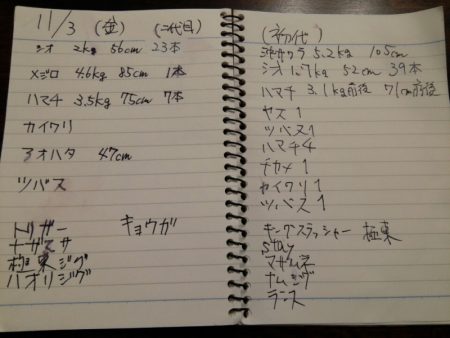 11/3 (金) (二代目)
シオ 2kg 56cm 23本
メジロ 4.6kg 85cm 1本
ハマチ 3.5kg 75cm 7本
カイワリ
アオハタ 47cm
ツバス
トリガー キョウガ
ナガスサ
極東ジグ
ハオリジグ
(初代)
沖サワラ 5.2kg 105cm
シオ 1.7kg 52cm 39本
ハマチ 3.1kg前後 71cm前後
ヤズ 1
ツバス 1
ハマチ 4
チカメ 1
カイワリ 1
ツバス 1
キングスラッシャー 極東
Stay
マサムネ
ナムジグ
ランス